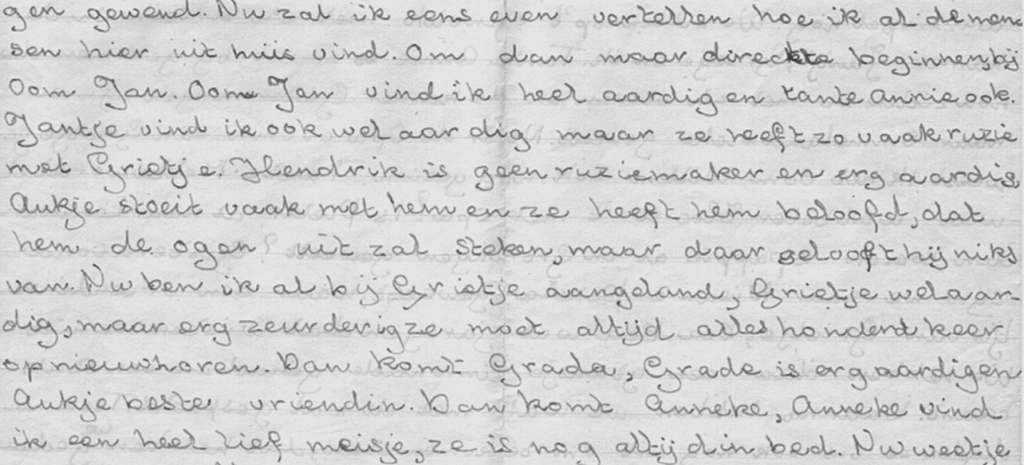 gen gewend. Nu zal ik eens even vertellen hoe ik al de men
sen hier uit huis vind. Om dan maar direckte beginnen, bij
Oom Jan. Oom Jan vind ik heel aardig en tante Annie ook.
Jantje vind ik ook wel aardig maar ze heeft zo vaak ruzie
met Grietje. Hendrik is geen ruziemaker en erg aardig,
Aukje stoeit vaak met hem en ze heeft hem beloofd, dat
hem de ogen uit zal steken, maar daar gelooft hij niks
van. Nu ben ik al bij Grietje aangeland, Grietje wel aar-
dig, maar erg zeurderig ze moet altijd alles hondert keer
opnieuw horen. Dan komt Grada, Grada is erg aardig en
Aukje beste vriendin. Dan komt Anneke, Anneke vind
ik een heel lief meisje, ze is nog altijd in bed. Nu weet je